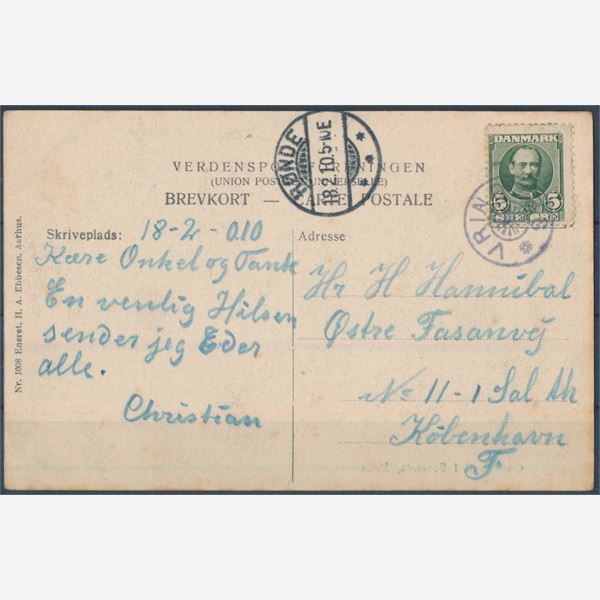 VERDENSPOSTFORENINGEN
(UNION POSTALE UNIVERSELLE)
BREVKORT — CARTE POSTALE
RØNDE
18.2.10.5-10E
DANMARK
5 5
ØRE ØRE
VRIN
Skriveplads: 18-2-010
Kære Onkel og Tante
En venlig Hilsen
sender jeg Eder
alle.
Christian
Adresse
Hr H Hannibal
Østre Fasanvej
No 11-1 Sal th
København
F
Nr. 1008 Eneret, H. A. Ebbesen, Aarhus.